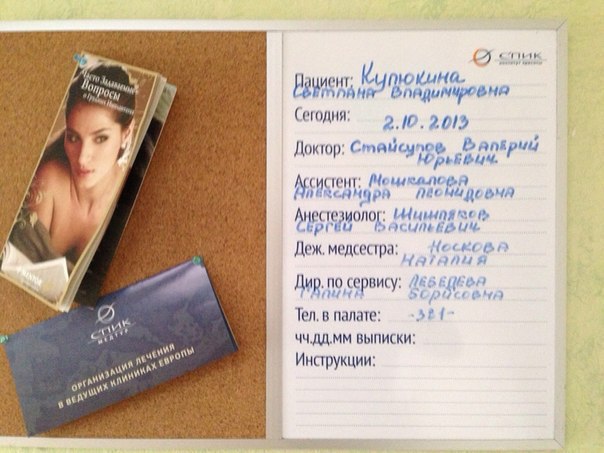 Часто Задаваемые
Вопросы
о Грудных Имплантатах
СПИК
МЕДТУР
ОРГАНИЗАЦИЯ ЛЕЧЕНИЯ
В ВЕДУЩИХ КЛИНИКАХ ЕВРОПЫ
СПИК
институт красоты
Пациент: Купюкина
Светлана Владимировна
Сегодня: 2.10.2013
Доктор: Стайсупов Валерий
Юрьевич
Ассистент: Мошкалова
Александра Леонидовна
Анестезиолог: Шишляков
Сергей Васильевич
Деж. медсестра: Носкова
Наталия
Дир. по сервису: Лебедева
Галина Борисовна
Тел. в палате: -321-
чч.дд.мм выписки:
Инструкции: